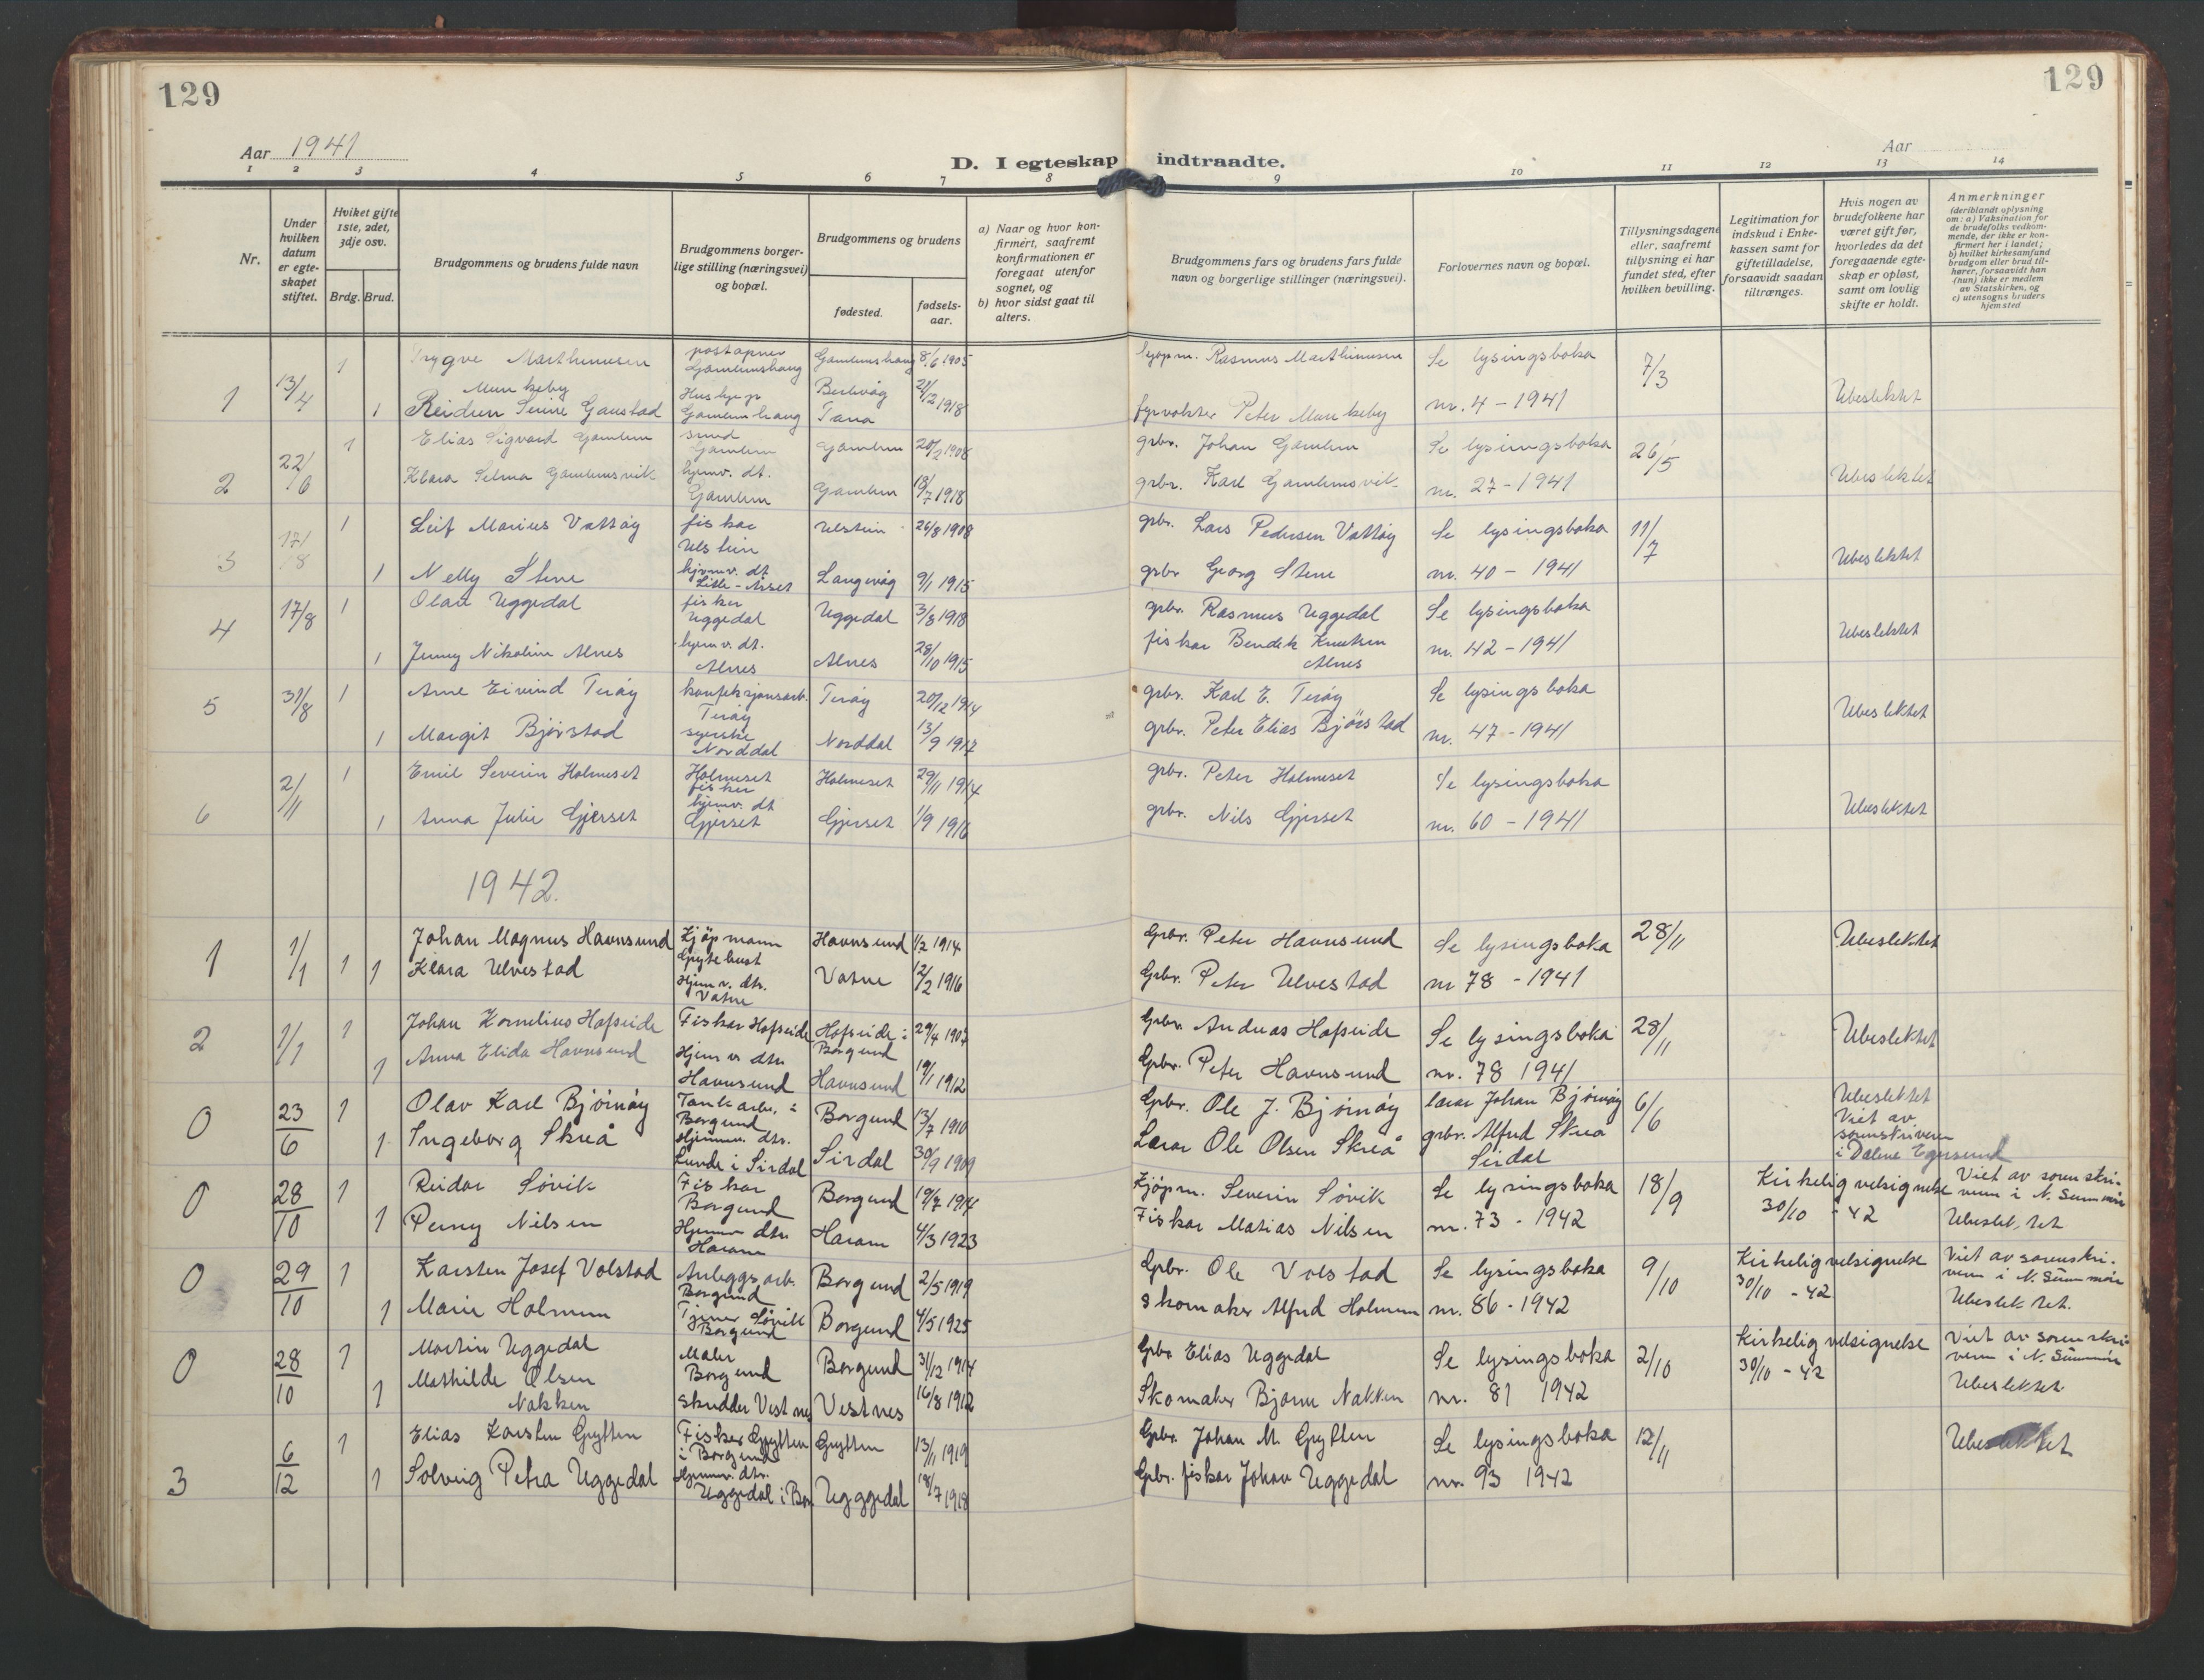 129
129
Aar 1941
Aar
D. I egteskap indtraadte.
1 2 3 4 5 6 7 8 9 10 11 12 13 14
Nr.
Under hvilken datum er egteskapet stiftet.
Hviket gifte 1ste, 2det, 3dje osv.
Brdg. Brud.
Brudgommens og brudens fulde navn
Brudgommens borgerlige stilling (næringsvei) og bopæl.
Brudgommens og brudens
fødested.
fødselsaar.
a) Naar og hvor konfirmert, saafremt konfirmationen er foregaat utenfor sognet, og
b) hvor sidst gaat til alters.
Brudgommens fars og brudens fars fulde navn og borgerlige stillinger (næringsvei).
Forlovernes navn og bopæl.
Tillysningsdagene eller, saafremt tillysning ei har fundet sted, efter hvilken bevilling.
Legitimation for indskud i Enkekassen samt for giftetilladelse, forsaavidt saadan tiltrænges.
Hvis nogen av brudefolkene har været gift før, hvorledes da det foregaaende egteskap er opløst, samt om lovlig skifte er holdt.
Anmerkninger (deriblandt oplysning om: a) Vaksination for de brudefolks vedkommende, der ikke er konfirmert her i landet; b) hvilket kirkesamfund brudgom eller brud tilhører, forsaavidt han (hun) ikke er medlem av Statskirken, og c) utensogns bruders hjemsted
1 13/4 1 Trygve Marthinussen postopner Gamlemshaug Gamlemshaug 8/6 1905 kjøpm. Rasmus Marthinussen Se lysingsboka 7/3
Munkeby
1 Reidun Serine Gaustad Gamlemshaug Berlevåg Tana 21/12 1918 fyrvokter Peter Munkeby nr. 4 - 1941 Ubeslektet
2 22/6 1 Elias Sigvard Gamlem smed Gamlem Gamlem 20/2 1908 grbr. Johan Gamlem Se lysingsboka 26/5
Klara Selma Gamlemsvik hjemv. dt. Gamlem Gamlem 18/7 1918 grbr. Karl Gamlemsvik nr. 27 - 1941 Ubeslektet
3 17/8 1 Leif Marius Vattøy fiskar Ulstein Ulstein 26/8 1908 grbr. Lars Pedersen Vattøy Se lysingsboka 11/7
1 Nelly Stene hjemv. dt Langevåg 9/1 1915 grbr Georg Stene nr. 40 - 1941 Ubeslektet
4 17/8 1 Olav Uggedal fisker Uggedal Uggedal 3/8 1918 grbr. Rasmus Uggedal Se lysingsboka
1 Jenny Nikoline Alnes hjemv. dt. Alnes Alnes 28/10 1915 fiskar Bendik Knutsen Alnes nr. 42 - 1941 Ubeslektet
5 31/8 1 Arne Eivind Terøy konfeksjonsarb. Terøy Terøy 20/12 1914 grbr. Karl E. Terøy Se lysingsboka
1 Margit Bjørstad syerske Norddal Norddal 13/9 1917 grbr. Peter Elias Bjørstad nr. 47 - 1941 Ubeslektet
6 2/11 1 Emil Severin Holmeset Holmeset fisker Holmeset 29/11 1914 grbr. Peter Holmeset Se lysingsboka
1 Anna Julie Gjerset hjemv. dt Gjerset Gjerset 1/9 1916 grbr. Nils Gjerset nr. 60 - 1941 Ubeslektet
1942.
1 1/1 1 Johan Magnus Havnsund Kjøpmann Havnsund 1/2 1914 Grbr. Peter Havnsund Se lysingsboka 28/11 Ubeslektet
1 Klara Ulvestad Hjemv. dtr. Vatne Vatne 12/2 1916 Grbr. Peter Ulvestad nr 78 - 1941
2 1/1 1 Johan Kornelius Hofseide Fiskar Hofseide Hofseide i Borgund 29/4 1907 Grbr. Andreas Hofseide Se lysingsboka 28/11 Ubeslektet
1 Anna Elida Havnsund Hjemv dtr Havnsund Havnsund 19/1 1912 Grbr. Peter Havnsund nr. 78 1941
0 23/6 1 Olav Karl Bjørnøy Tankarb. i Borgund Borgund 13/7 1910 Grbr. Ole J. Bjørnøy lærar Johan Bjørnøy 6/6 Ubeslektet
1 Ingeborg Skreå Hjemmv. dtr. Lunde i Sirdal Sirdal 30/9 1909 Lærar Ole Olsen Skreå grbr. Alfred Skreå Sirdal Viet av sorenskriveren i Dalene Egersund
0 28/10 1 Reidar Søvik Fiskar Borgund Borgund 19/7 1914 Kjøpm. Severin Søvik Se lysingsboka 18/9 Kirkelig velsignelse 30/10 - 42 Viet av sorenskriveren i N. Sunnmøre
1 Perny Nilsen Hjemmv dtr Haram Haram 4/3 1923 Fiskar Matias Nilsen nr. 73 - 1942 Ubeslektet
0 29/10 1 Karsten Josef Volstad Anleggsarb. Borgund Borgund 2/5 1919 Grbr. Ole Volstad Se lysingsboka 9/10 Kirkelig velsignelse 30/10 - 42 Viet av sorenskriveren i N. Sunnmøre
1 Marie Holmem Tjener Søvik Borgund Borgund 4/5 1925 skomaker Alfred Holmem nr. 86 - 1942 Ubeslektet.
0 28/10 1 Martin Uggedal Maler Borgund Borgund 31/12 1914 Grbr Elias Uggedal Se lysingsboka 2/10 Kirkelig velsignelse 30/10 - 42 Viet av sorenskriveren i N. Sunnmøre
1 Mathilde Olsen Nakken Vestnes Vestnes 16/8 1912 Skomaker Bjarne Nakken nr. 81 1942 Ubeslektet
3 6/12 1 Elias Karsten Grytten Fisker Grytten i Borgund Grytten 13/11 1919 Grbr. Johan M. Grytten Se lysingsboka 12/11 Ubeslektet
1 Solveig Petra Uggedal Hjemmv. dtr. Uggedal i Bor Uggedal 18/7 1918 Grbr. fiskar Johan Uggedal nr. 93 1942